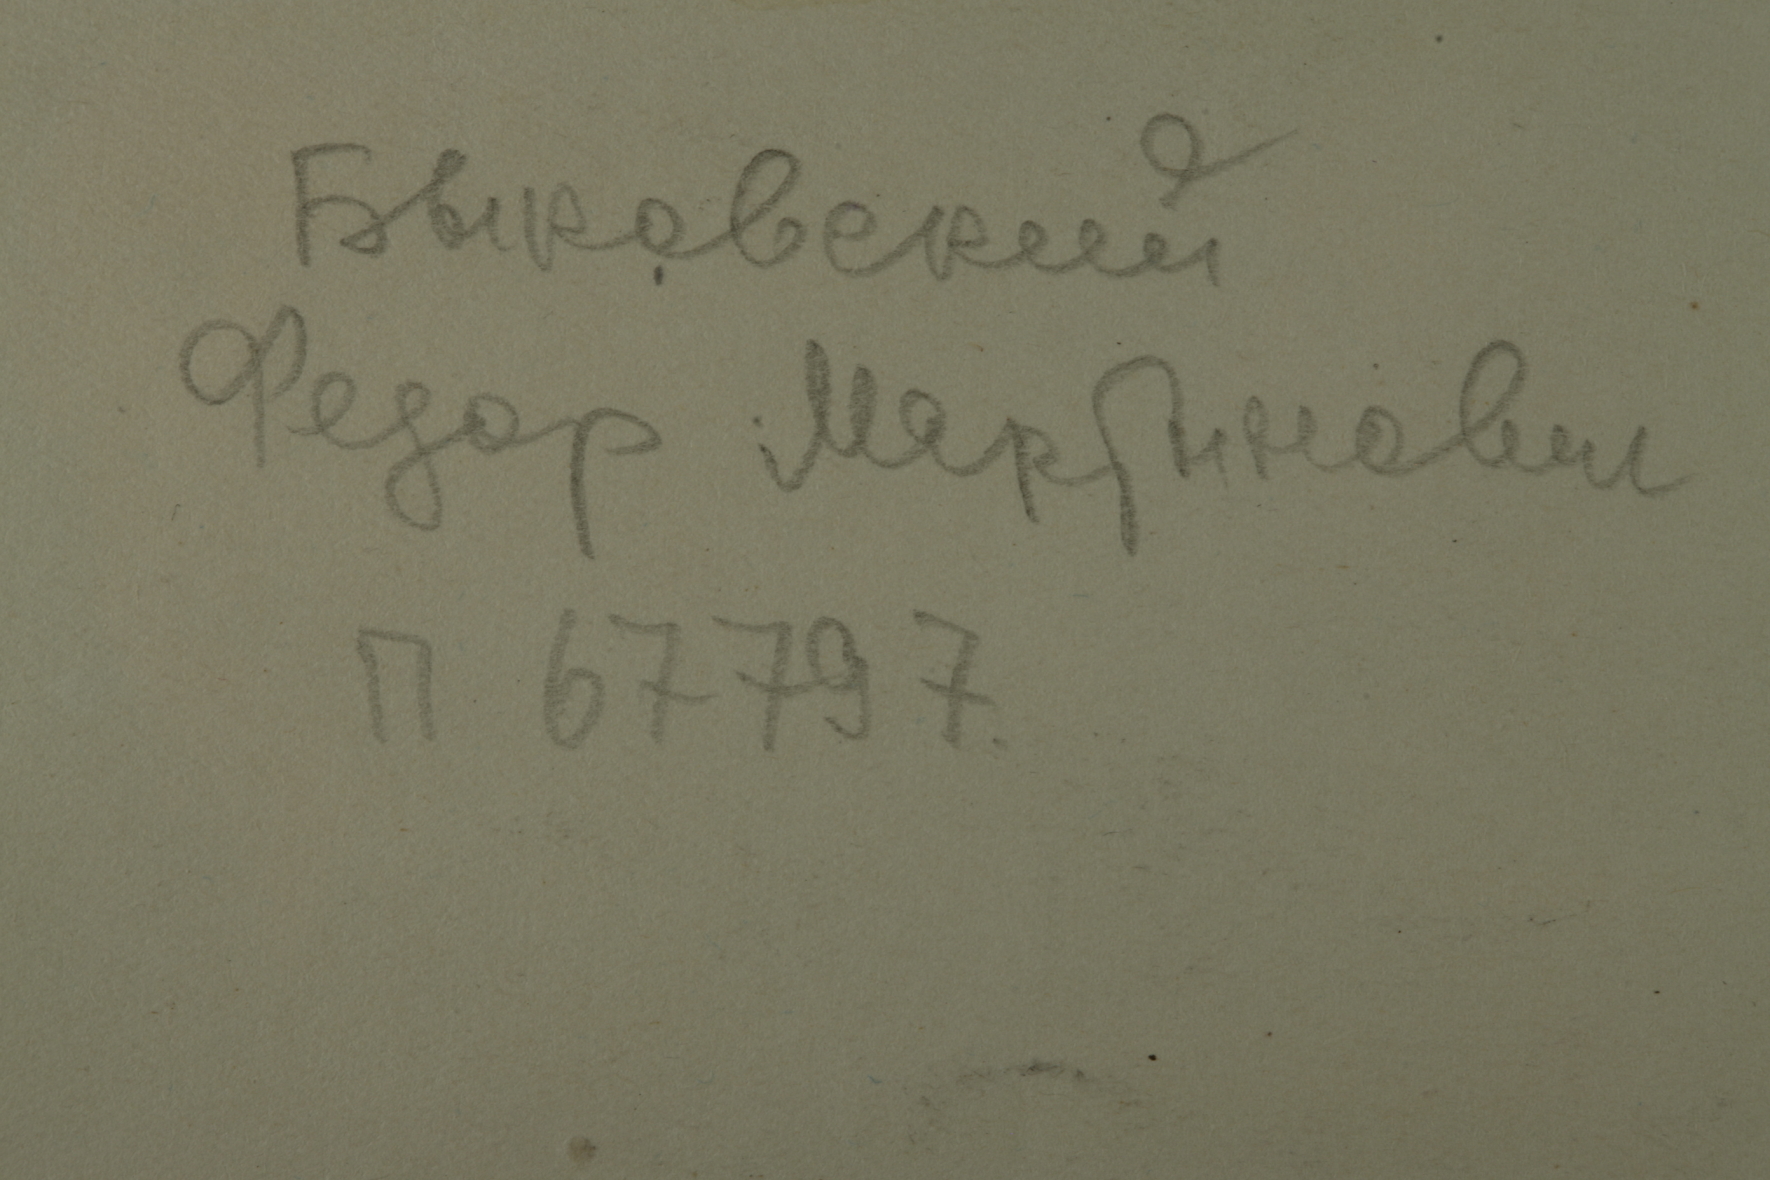 Быковский
Федор Мартинович
П 67797.